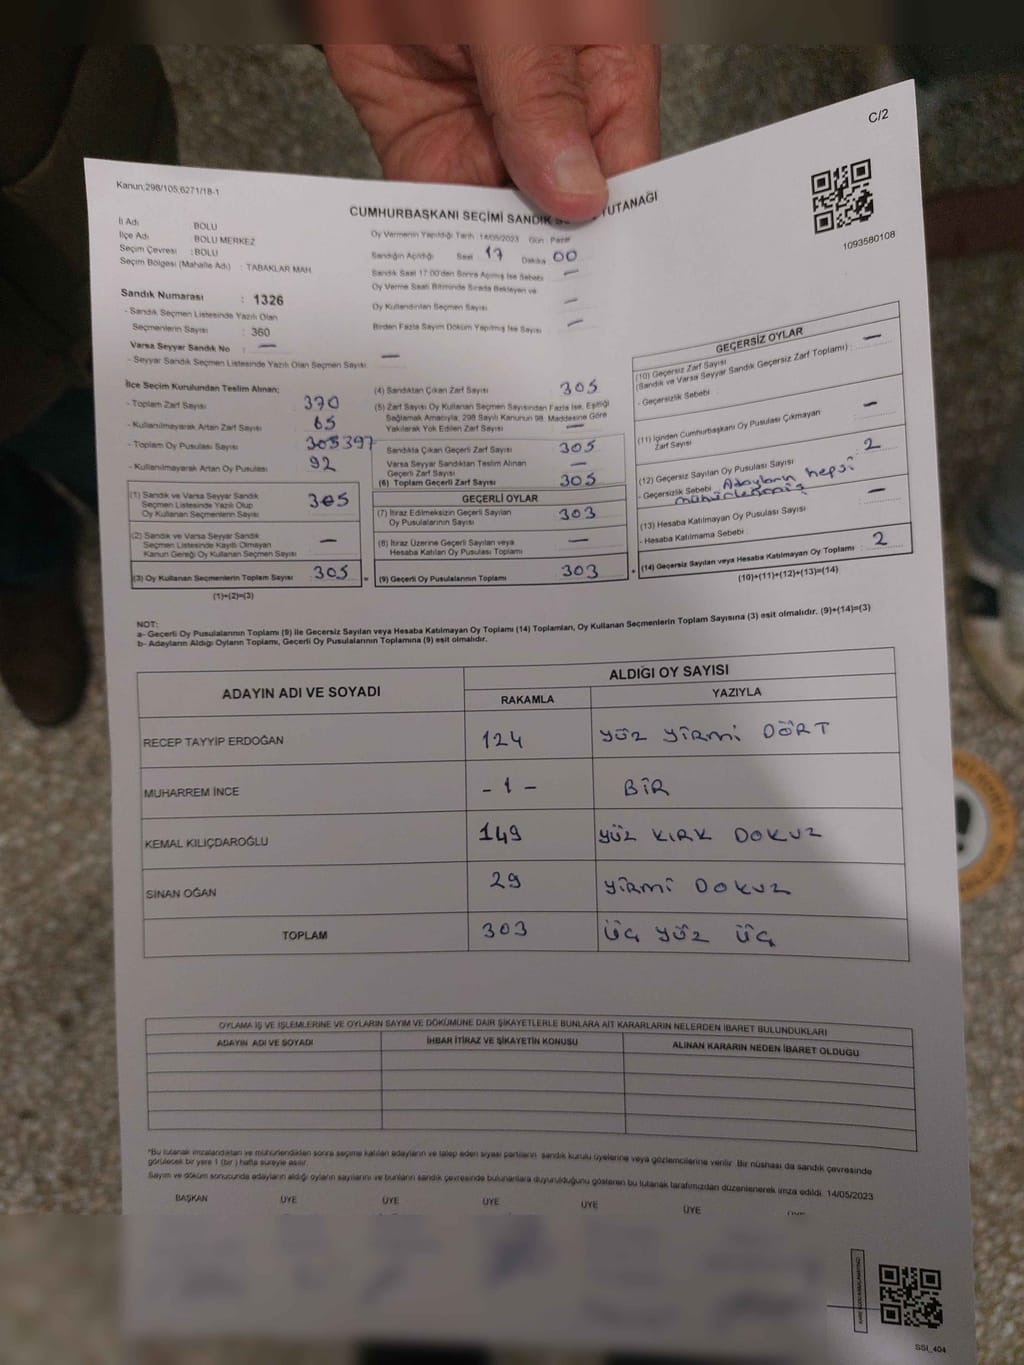 C/2
Kanun;298/105;6271/18-1
CUMHURBAŞKANI SEÇİMİ SANDIK TUTANAĞI
1093580108
İl Adı : BOLU
İlçe Adı : BOLU MERKEZ
Seçim Çevresi : BOLU
Seçim Bölgesi (Mahalle Adı) : TABAKLAR MAH
Sandık Numarası : 1326
- Sandık Seçmen Listesinde Yazılı Olan
Seçmenlerin Sayısı : 360
Varsa Seyyar Sandık No : —
- Seyyar Sandık Seçmen Listesinde Yazılı Olan Seçmen Sayısı : —
Oy Vermenin Yapıldığı Tarih : 14/05/2023 Gün : Pazar
Sandığın Açıldığı Saat 17 Dakika 00
Sandık Saat 17:00'den Sonra Açılmış İse Sebebi —
Oy Verme Saati Bitiminde Sırada Bekleyen ve
Oy Kullandırılan Seçmen Sayısı —
Birden Fazla Sayım Döküm Yapılmış İse Sayısı —
İlçe Seçim Kurulundan Teslim Alınan;
- Toplam Zarf Sayısı : 370
- Kullanılmayarak Artan Zarf Sayısı : 65
- Toplam Oy Pusulası Sayısı : 305 397
- Kullanılmayarak Artan Oy Pusulası : 92
(1) Sandık ve Varsa Seyyar Sandık
Seçmen Listesinde Yazılı Olup
Oy Kullanan Seçmenlerin Sayısı : 305
(2) Sandık ve Varsa Seyyar Sandık
Seçmen Listesinde Kayıtlı Olmayan
Kanun Gereği Oy Kullanan Seçmen Sayısı : —
(3) Oy Kullanan Seçmenlerin Toplam Sayısı : 305 =
(1)+(2)=(3)
(4) Sandıktan Çıkan Zarf Sayısı : 305
(5) Zarf Sayısı Oy Kullanan Seçmen Sayısından Fazla İse, Eşitliği
Sağlamak Amacıyla; 298 Sayılı Kanunun 98. Maddesine Göre
Yakılarak Yok Edilen Zarf Sayısı : —
Sandıkta Çıkan Geçerli Zarf Sayısı : 305
Varsa Seyyar Sandıktan Teslim Alınan
Geçerli Zarf Sayısı : —
(6) Toplam Geçerli Zarf Sayısı : 305
GEÇERLİ OYLAR
(7) İtiraz Edilmeksizin Geçerli Sayılan
Oy Pusulalarının Sayısı : 303
(8) İtiraz Üzerine Geçerli Sayılan veya
Hesaba Katılan Oy Pusulası Toplamı : —
(9) Geçerli Oy Pusulalarının Toplamı : 303 +
GEÇERSİZ OYLAR
(10) Geçersiz Zarf Sayısı
(Sandık ve Varsa Seyyar Sandık Geçersiz Zarf Toplamı) : —
- Geçersizlik Sebebi :
(11) İçinden Cumhurbaşkanı Oy Pusulası Çıkmayan
Zarf Sayısı : —
(12) Geçersiz Sayılan Oy Pusulası Sayısı : 2
- Geçersizlik Sebebi : Adayların hepsi
mühürlenmiş
(13) Hesaba Katılmayan Oy Pusulası Sayısı : —
- Hesaba Katılmama Sebebi :
(14) Geçersiz Sayılan veya Hesaba Katılmayan Oy Toplamı : 2
(10)+(11)+(12)+(13)=(14)
NOT:
a- Geçerli Oy Pusulalarının Toplamı (9) ile Geçersiz Sayılan veya Hesaba Katılmayan Oy Toplamı (14) Toplamları, Oy Kullanan Seçmenlerin Toplam Sayısına (3) eşit olmalıdır. (9)+(14)=(3)
b- Adayların Aldığı Oyların Toplamı, Geçerli Oy Pusulalarının Toplamına (9) eşit olmalıdır.
ADAYIN ADI VE SOYADI ALDIĞI OY SAYISI
RAKAMLA YAZIYLA
RECEP TAYYİP ERDOĞAN 124 YÜZ YİRMİ DÖRT
MUHARREM İNCE - 1 - BİR
KEMAL KILIÇDAROĞLU 149 YÜZ KIRK DOKUZ
SİNAN OĞAN 29 YİRMİ DOKUZ
TOPLAM 303 ÜÇ YÜZ ÜÇ
OYLAMA İŞ VE İŞLEMLERİNE VE OYLARIN SAYIM VE DÖKÜMÜNE DAİR ŞİKAYETLERLE BUNLARA AİT KARARLARIN NELERDEN İBARET BULUNDUKLARI
ADAYIN ADI VE SOYADI İHBAR İTİRAZ VE ŞİKAYETİN KONUSU ALINAN KARARIN NEDEN İBARET OLDUĞU
*Bu tutanak imzalandıktan ve mühürlendikten sonra seçime katılan adayların ve talep eden siyasi partilerin sandık kurulu üyelerine veya gözlemcilerine verilir. Bir nüshası da sandık çevresinde
görülecek bir yere 1 (bir ) hafta süreyle asılır.
Sayım ve döküm sonucunda adayların aldığı oyların sayılarını ve bunların sandık çevresinde bulunanlara duyurulduğunu gösteren bu tutanak tarafımızdan düzenlenerek imza edildi. 14/05/2023
BAŞKAN ÜYE ÜYE ÜYE ÜYE ÜYE ÜYE
SSI_404